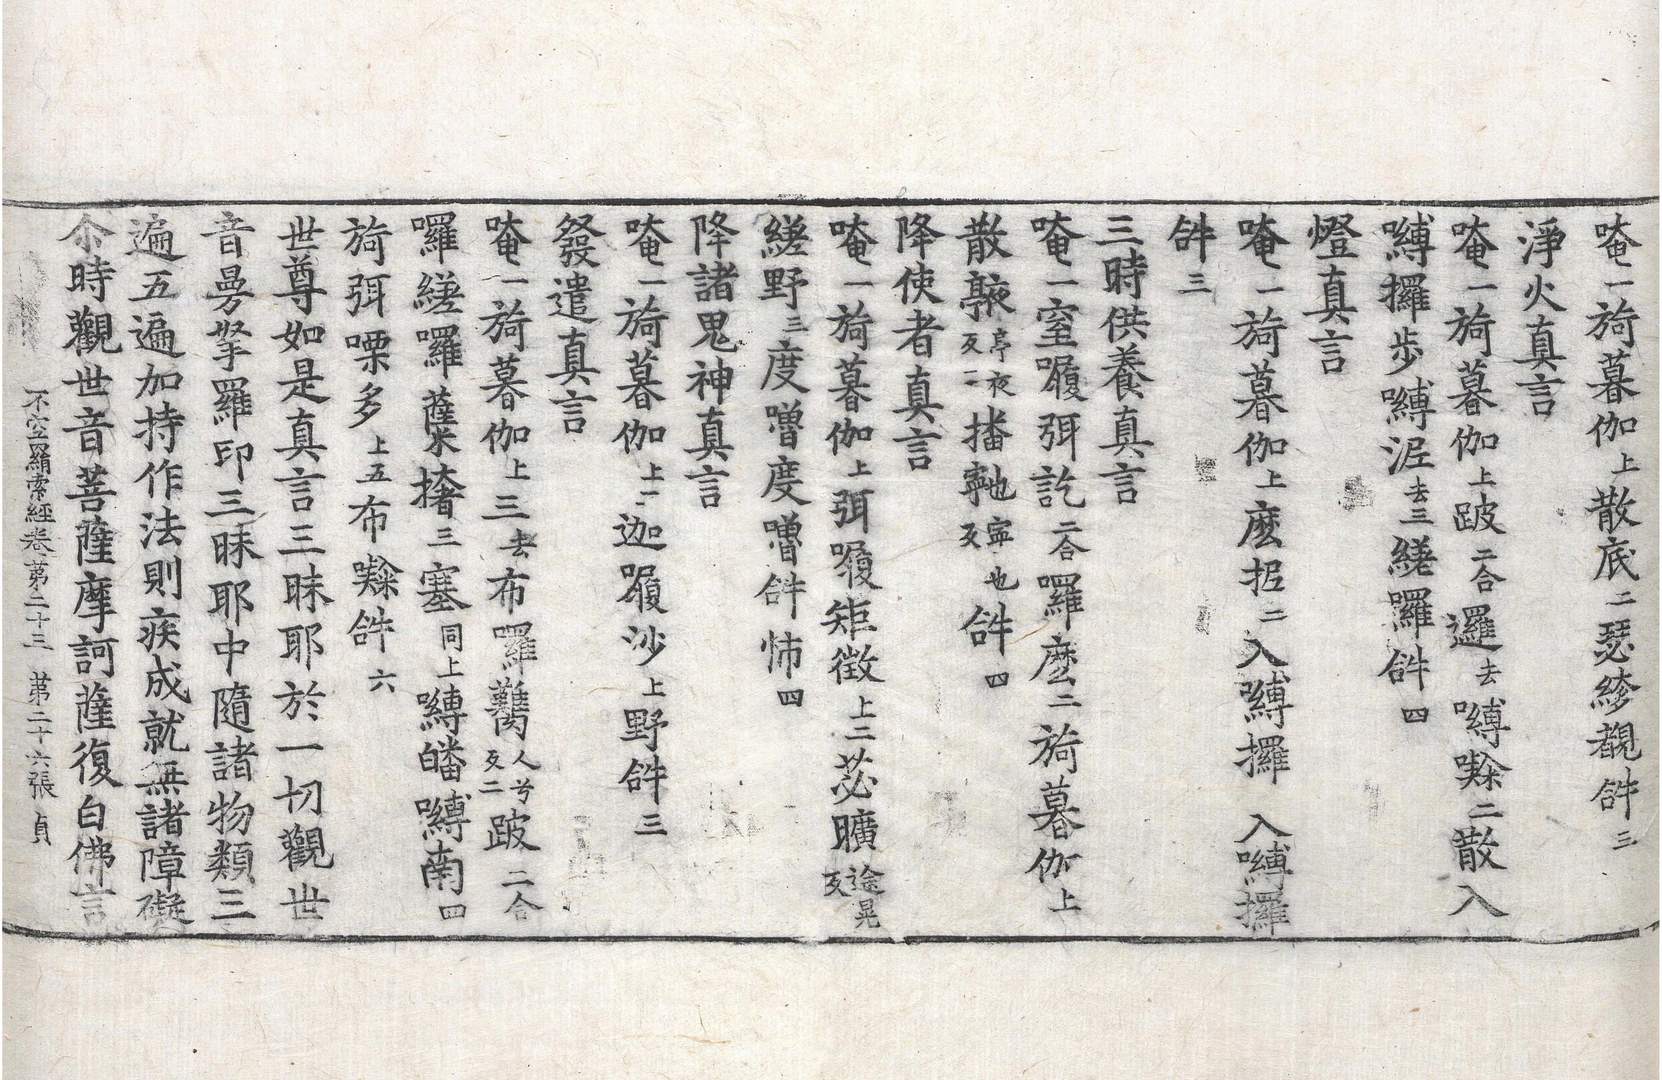 唵一旖暮伽上散底二瑟縿覩𤙖三
淨火真言
唵一旖暮伽上跛二合邏去嚩㘑二散入
嚩攞步嚩泥去三縒囉𤙖四
燈真言
唵一旖暮伽上麽抳二入嚩攞入嚩攞
𤙖三
三時供養真言
唵一窒㗚弭訖二合囉麽二旖暮伽上
散亭夜反二播寧也反寧也𤙖四
降使者真言
唵一旖暮伽上弭㗚矩徵上二苾曠途晃反
縒野三度嚕度嚕𤙖㤄四
降諸鬼神真言
唵一旖暮伽上二迦㗚沙上野𤙖三
發遣真言
唵一旖暮伽上三去布囉鸘人兮反二跛二合
囉縒囉薩撦三塞同上嚩皤嚩南四
旖弭㗚多上五布㘑𤙖六
世尊如是真言三昧耶於一切觀世
音曼拏羅印三昧耶中隨諸物類三
遍五遍加持作法則疾成就無諸障礙
尒時觀世音菩薩摩訶薩復白佛言
不空羂索經卷苐二十三 苐二十六張 貞